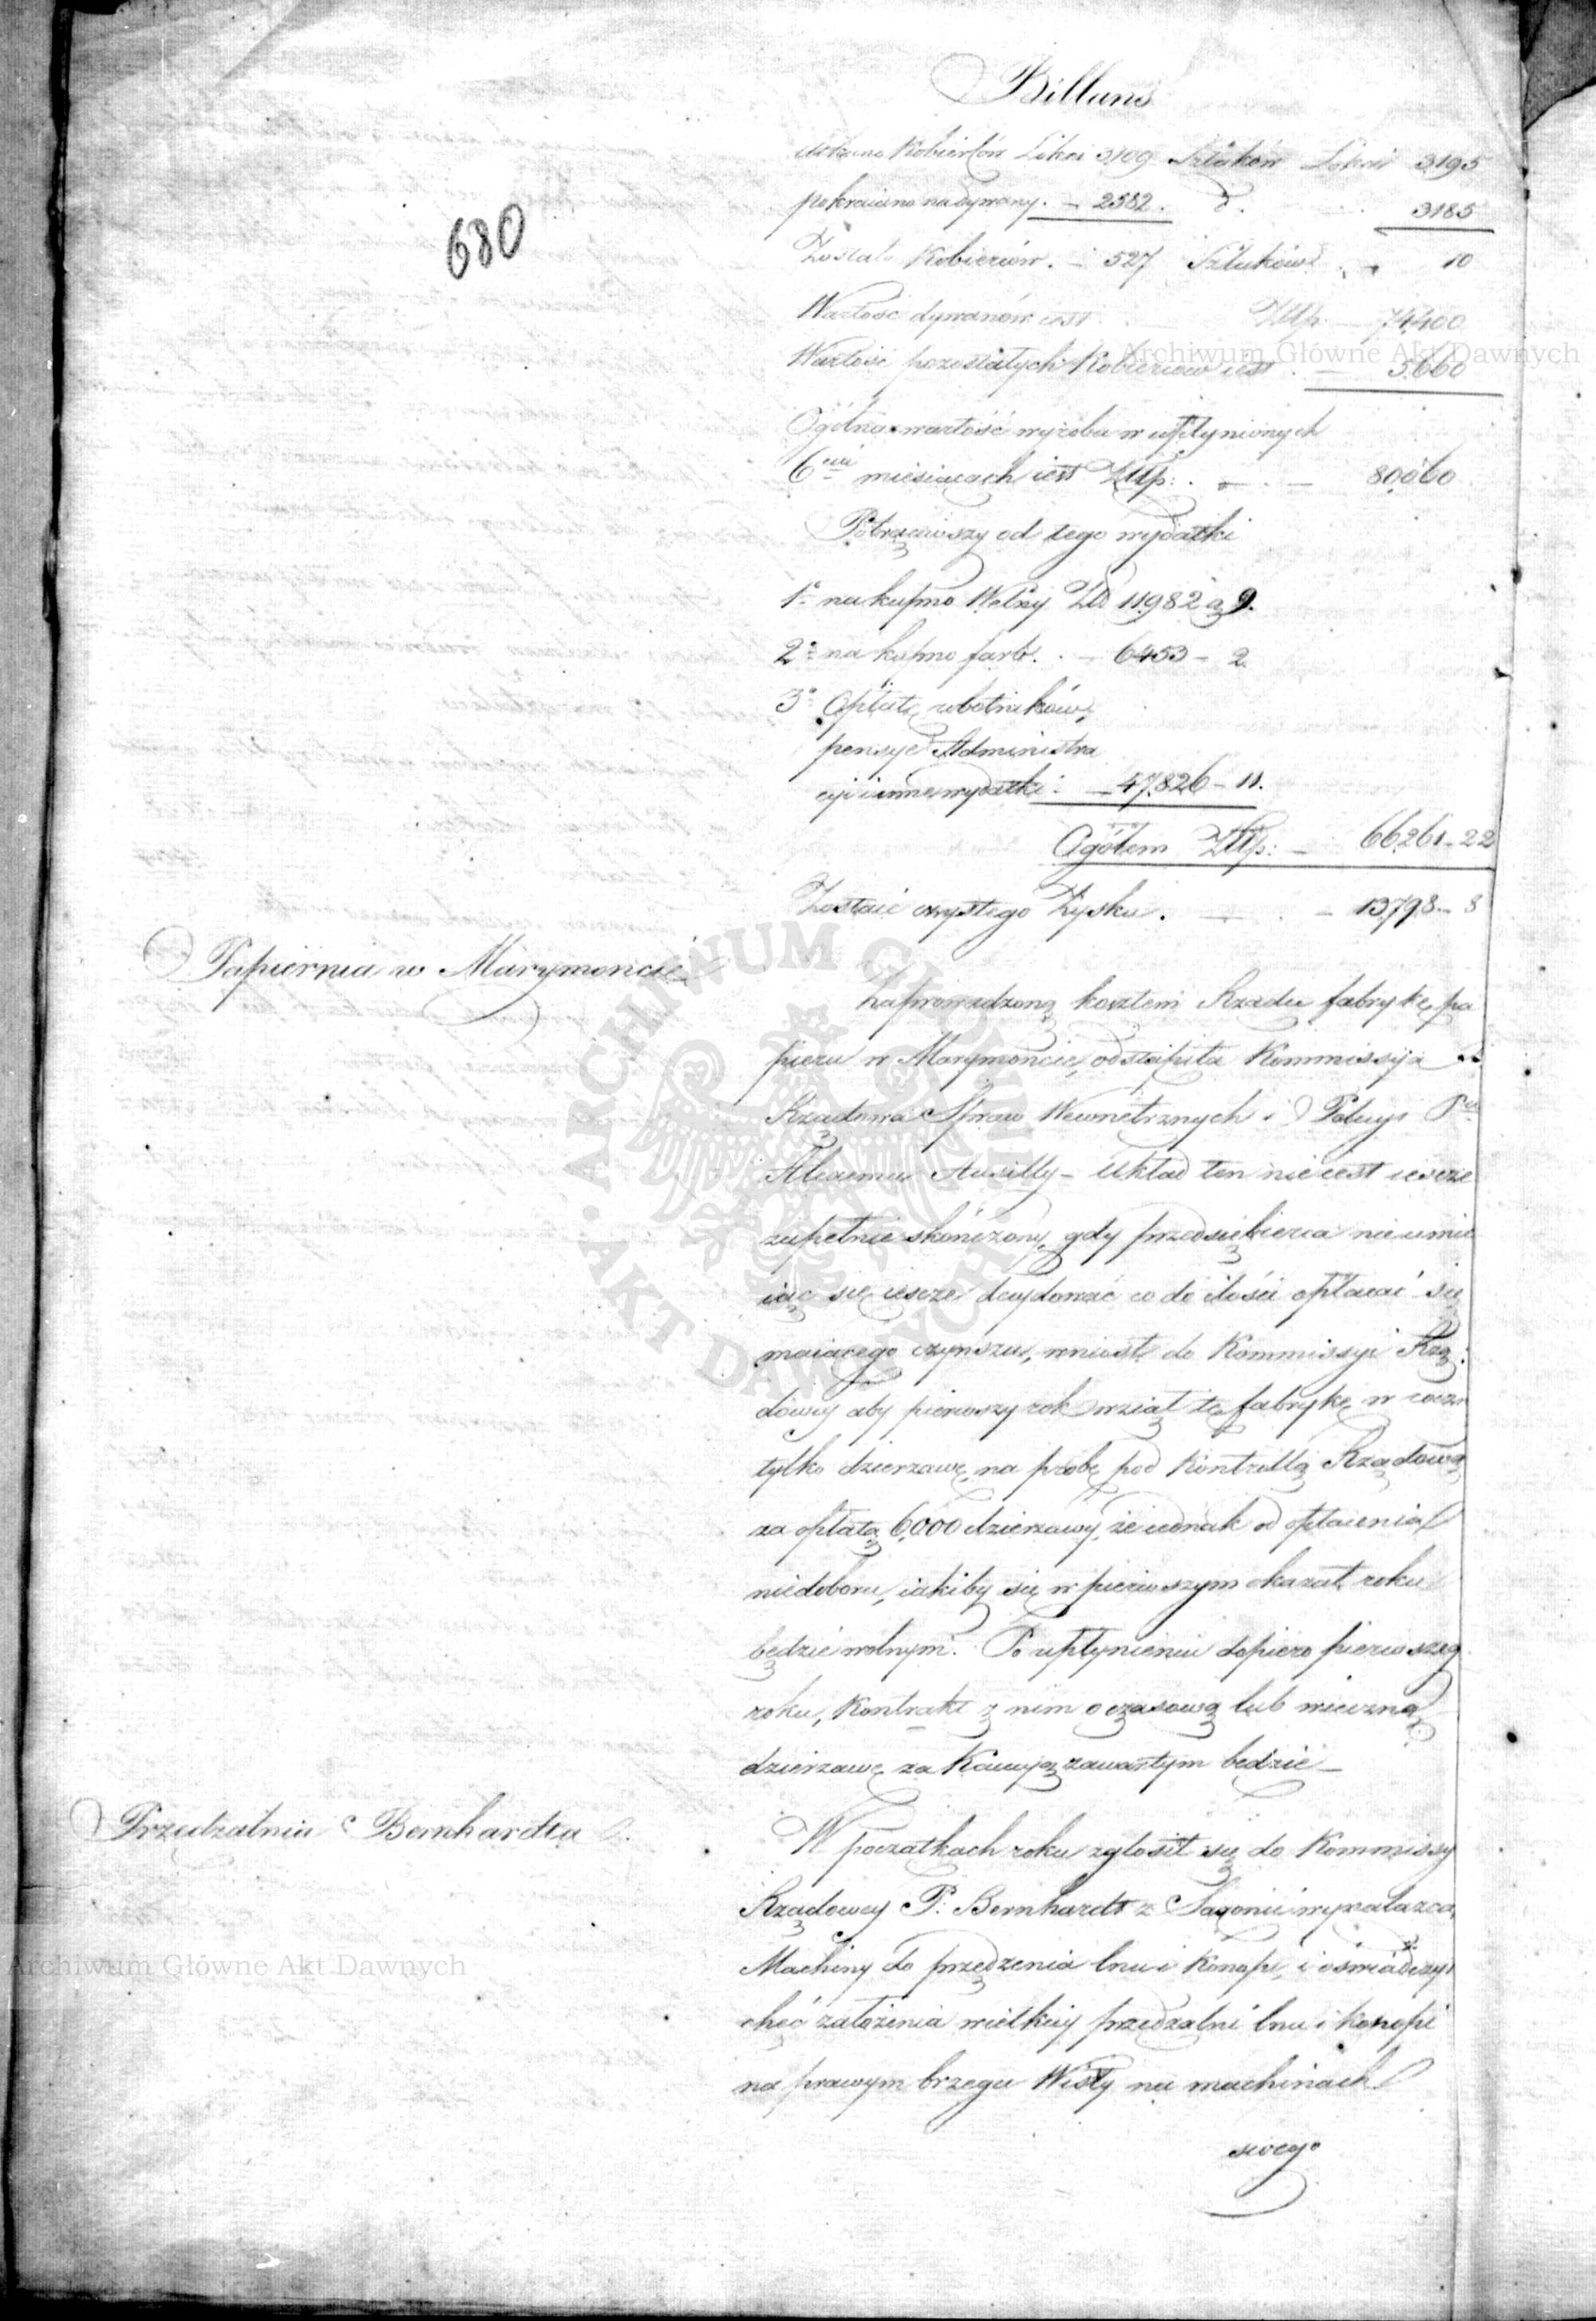 680
Billans
utkano Kobierców Łokci 3,109 Szlaków Łokci 3,195
pokraiano na dywany. — 2582. d°. 3185
Zostało Kobierców. — 527 Szlaków 10
Wartość dywanów iest Złłp. — 74,400
Wartość pozostałych Kobierców iest — 5,660
Ogólna wartość wyrobu w upłynionych
6ciu miesiącach iest Złłp: — 80,060
Potrąciwszy od tego wydatki
1° na kupno Wełny Zł 11,982 g 9.
2° na kupno farb. — 6453 – 2
3° Opłatę robotników,
pensye Administra
cyi i inne wydatki — 47,826 – 11.
Ogółem Złłp: — 66,261 – 22
Zostaie czystego Zysku. — 13,798 – 8
Papiernia w Marymoncie
Zaprowadzoną kosztem Rządu fabrykę pa
pieru w Marymoncie, odstąpiła Kommissyja
Rządowa Spraw Wewnętrznych i Policyi Pu
Ausilly – Układ ten nie iest ieszcze
zupełnie skończony, gdy przedsiębierca nie umie
iąc się ieszcze decydować co do ilości opłacać się
maiącego czynszu, wniósł do Kommissyi Rzą
dowey aby pierwszy rok wziął tę fabrykę w
tylko dzierzawę na probę pod Kontrollą Rządową
za opłatą 6,000 dzierzawy, że iednak od opłacenia
niedoboru, iakiby się w pierwszym okazał roku
będzie wolnym. Po upłynieniu dopiero pierwszeg
roku, Kontrakt z nim o czasową lub wieczną
dzierzawę za Kaucyą zawartym będzie –
Przędzalnia Bernhardta
W początkach roku zgłosił się do Kommissy
Rządowey P. Bernhardt z Saxonii wynalazca
Machiny do przędzenia lnu i Konopi, i oświadczył
chęć założenia wielkiey przędzalni lnu i konopi
na prawym brzegu Wisły na machinach
swego
Archiwum Główne Akt Dawnych
ARCHIWUM GŁÓWNE AKT DAWNYCH
Archiwum Główne Akt Dawnych